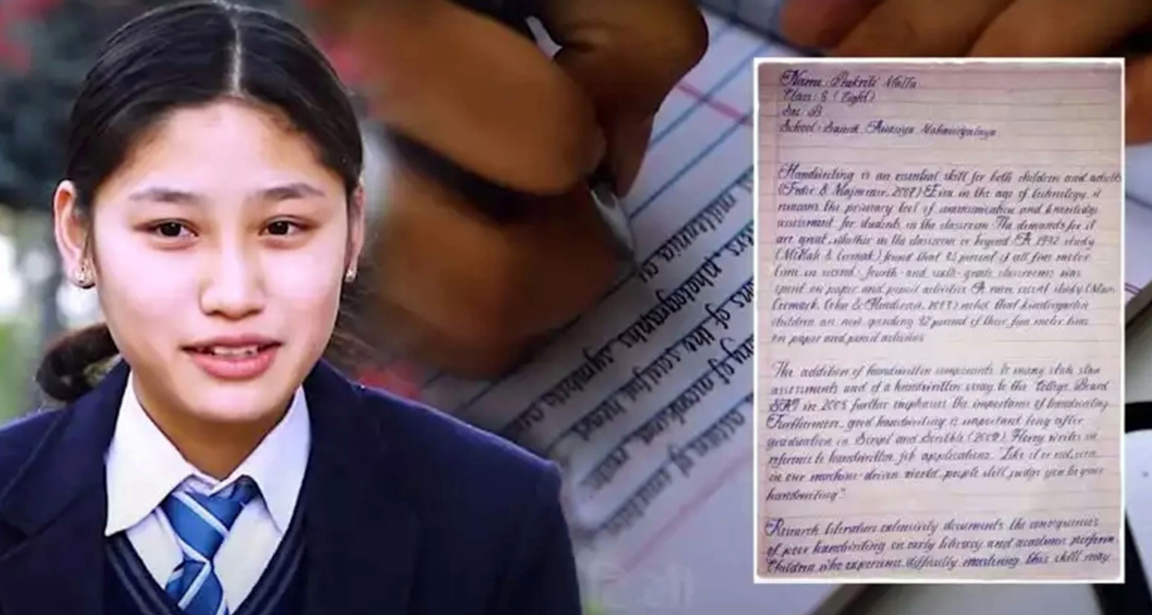 Name: Prakriti Malla
Class: 8 (Eight)
Sec: B
School: Sainik Awasiya Mahavidyalaya
Handwriting is an essential skill for both children and adults
(Feder & Majnemer, 2007) Even in the age of technology, it
remains the primary tool of communication and knowledge
assessment for students in the classroom The demands for it
are great, whether in the classroom or beyond A 1992 study
(McHale & Cermak) found that 85 percent of all fine motor
time in second- fourth- and sixth- grade classrooms was
spent on paper and pencil activities A more recent study (Marr,
Cermak, Cohn & Henderson, 2003) noted that kindergarten
children are now spending 42 percent of their fine motor time
on paper and pencil activities
The addition of handwritten components to many state
assessments and of a handwritten essay to the College Board
SAT in 2005 further emphasises the importance of handwriting
Furthermore, good handwriting is important long after
graduation in Script and Scribble (2009) Florey writes in
reference to handwritten job applications. "Like it or not, even
in our machine-driven world, people still judge you by your
handwriting"
Research literature extensively documents the consequences
of poor handwriting on early literacy and academic perform
Children who experience difficulty mastering this skill may
photographs symbols
of the sculpted heart
of ancient